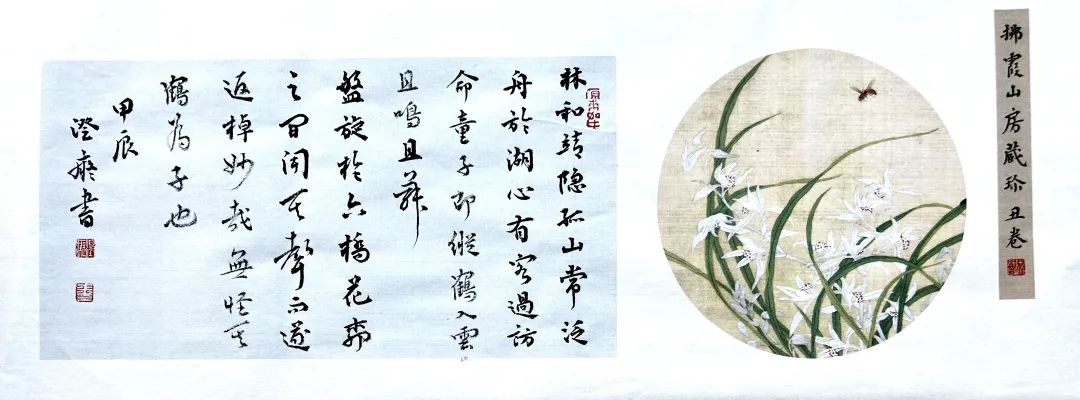 拂霞山房藏珍 丑卷
林和靖隐孤山常泛
舟於湖心有客過訪
命童子即縱鶴入雲
且鳴且舞
盤旋於六橋花柳
之间闻其聲而遂
返棹妙哉無怪其
鶴為子也
甲辰
澄書